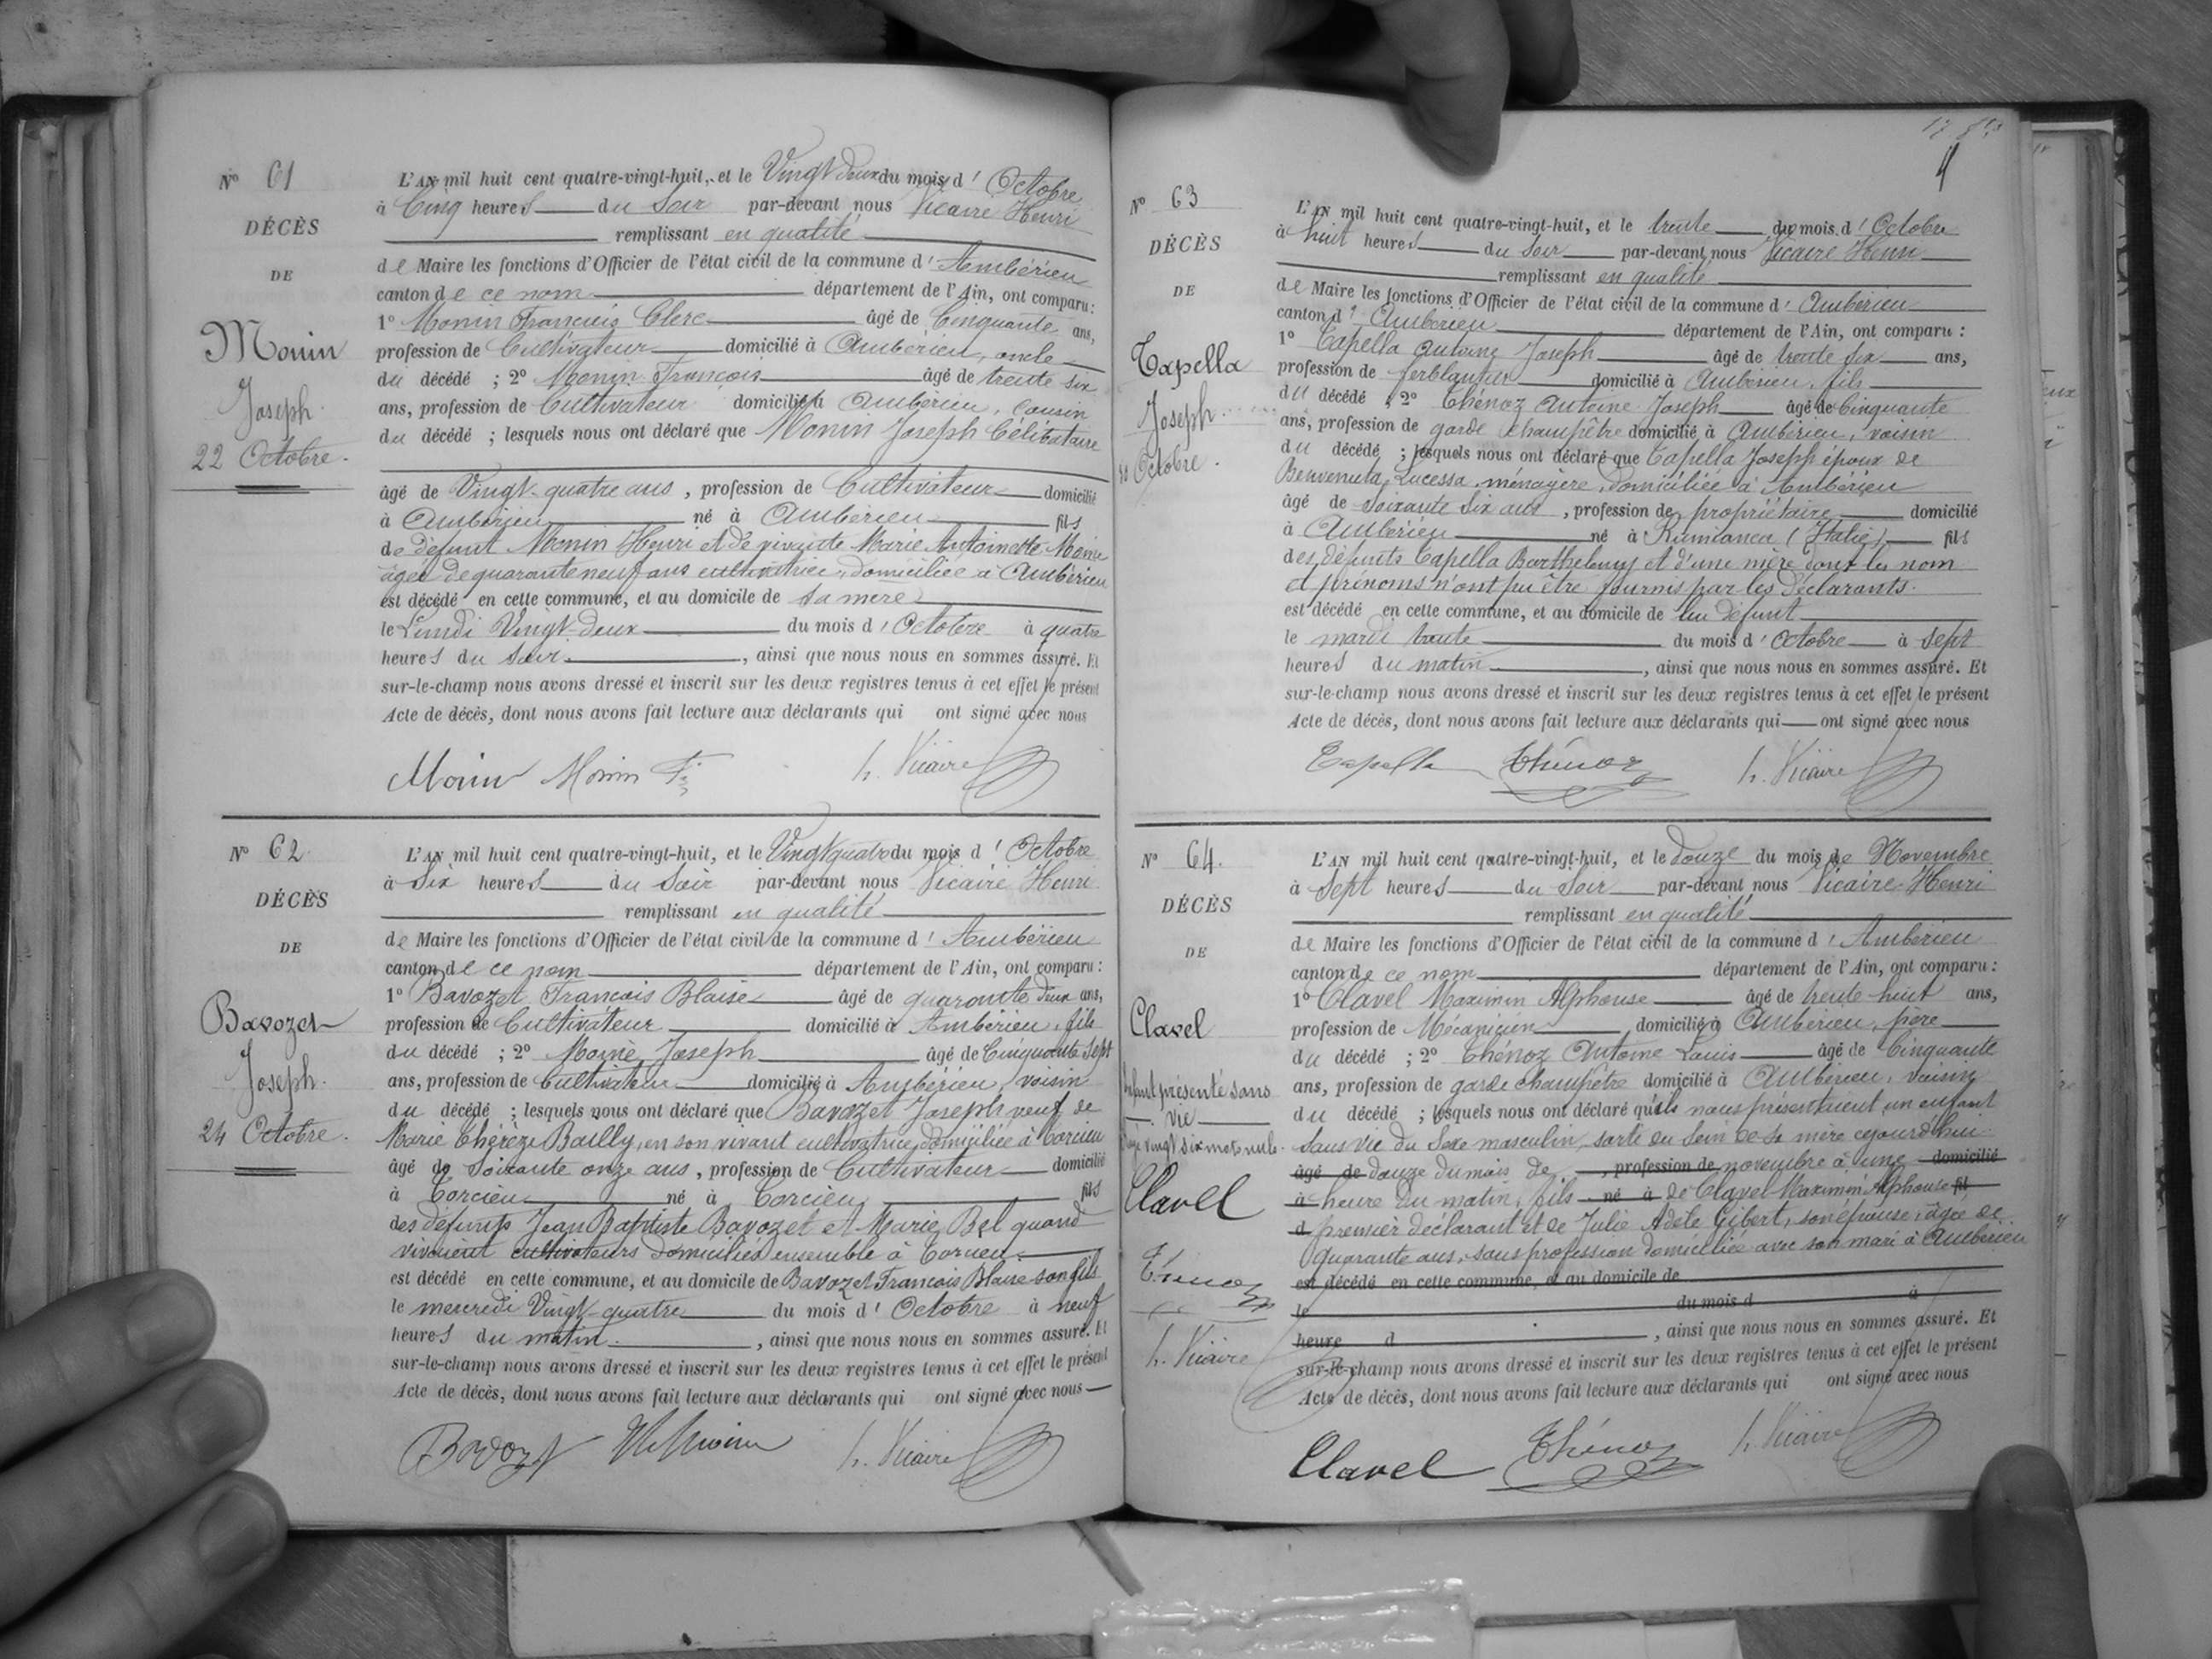 Nº 61
DÉCÈS
DE
Monin
Joseph.
22 Octobre.
L'AN mil huit cent quatre-vingt-huit, et le Vingt deux du mois d' Octobre
à Cinq heures du Soir par-devant nous Vicaire Henri
remplissant en qualité
de Maire les fonctions d'Officier de l'état civil de la commune d' Ambérieu
canton de ce nom département de l'Ain, ont comparu :
1º Monin François Clerc âgé de Cinquante ans,
profession de Cultivateur domicilié à Ambérieu, oncle
du décédé ; 2º Monin François âgé de trente six
ans, profession de Cultivateur domicilié à Ambérieu, Cousin
du décédé ; lesquels nous ont déclaré que Monin Joseph Célibataire
âgé de Vingt-quatre ans, profession de Cultivateur domicilié
à Ambérieu né à Ambérieu fils
de défunt Monin Henri et de vivante Marie Antoinette
âgée de quarante neuf ans cultivatrice, domiciliée à Ambérieu
est décédé en cette commune, et au domicile de Sa mère
le Lundi Vingt-deux du mois d' Octobre à quatre
heures du Soir, ainsi que nous nous en sommes assuré. Et
sur-le-champ nous avons dressé et inscrit sur les deux registres tenus à cet effet le présent
Acte de décès, dont nous avons fait lecture aux déclarants qui ont signé avec nous
Monin Monin Fs h. Vicaire
Nº 62
DÉCÈS
DE
Bavozet
Joseph.
24 Octobre.
L'AN mil huit cent quatre-vingt-huit, et le Vingt quatre du mois d' Octobre
à Six heures du Soir par-devant nous Vicaire Henri
remplissant en qualité
de Maire les fonctions d'Officier de l'état civil de la commune d' Ambérieu
canton de ce nom département de l'Ain, ont comparu :
1º Bavozet François Blaise âgé de quarante deux ans,
profession de Cultivateur domicilié à Ambérieu, fils
du décédé ; 2º Joseph âgé de Cinquante Sept
ans, profession de Cultivateur domicilié à Ambérieu, voisin
du décédé ; lesquels nous ont déclaré que Bavozet Joseph veuf de
Marie Thérèze Bailly, en son vivant cultivatrice, domiciliée à Torcieu
âgé de Soixante onze ans, profession de Cultivateur domicilié
à Torcieu né à Torcieu fils
des défunts Jean Baptiste Bavozet et Marie Bel quand
vivaient cultivateurs domiciliés ensemble à Torcieu
est décédé en cette commune, et au domicile de Bavozet François Blaise son fils
le mercredi Vingt-quatre du mois d' Octobre à neuf
heures du matin, ainsi que nous nous en sommes assuré. Et
sur-le-champ nous avons dressé et inscrit sur les deux registres tenus à cet effet le présent
Acte de décès, dont nous avons fait lecture aux déclarants qui ont signé avec nous
Bavozet h. Vicaire
Nº 63
DÉCÈS
DE
Capella
Joseph
30 Octobre.
L'AN mil huit cent quatre-vingt-huit, et le trente du mois d' Octobre
à huit heures du Soir par-devant nous Vicaire Henri
remplissant en qualité
de Maire les fonctions d'Officier de l'état civil de la commune d' Ambérieu
canton d' Ambérieu département de l'Ain, ont comparu :
1º Capella Antoine Joseph âgé de trente Six ans,
profession de ferblantier domicilié à Ambérieu, fils
du décédé ; 2º Thénoz Antoine Joseph âgé de Cinquante
ans, profession de garde champêtre domicilié à Ambérieu, voisin
du décédé ; lesquels nous ont déclaré que Capella Joseph époux de
Benvenuta Lucessa, ménagère, domiciliée à Ambérieu
âgé de Soixante Six ans, profession de propriétaire domicilié
à Ambérieu né à Rumianca (Italie) fils
des défunts Capella Barthelemy et d'une mère dont les nom
et prénoms n'ont pu être fournis par les déclarants.
est décédé en cette commune, et au domicile de lui défunt
le mardi trente du mois d' Octobre à Sept
heures du matin, ainsi que nous nous en sommes assuré. Et
sur-le-champ nous avons dressé et inscrit sur les deux registres tenus à cet effet le présent
Acte de décès, dont nous avons fait lecture aux déclarants qui ont signé avec nous
Capella Thénoz h. Vicaire
Nº 64.
DÉCÈS
DE
Clavel
Enfant présenté sans
vie
vingt six mots nuls.
Clavel
Thénoz
h. Vicaire
L'AN mil huit cent quatre-vingt-huit, et le douze du mois de Novembre
à Sept heures du Soir par-devant nous Vicaire Henri
remplissant en qualité
de Maire les fonctions d'Officier de l'état civil de la commune d' Ambérieu
canton de ce nom département de l'Ain, ont comparu :
1º Clavel Maximin Alphonse âgé de trente huit ans,
profession de Mécanicien domicilié à Ambérieu, père
du décédé ; 2º Thénoz Antoine Louis âgé de Cinquante
ans, profession de garde champêtre domicilié à Ambérieu, voisin
du décédé ; lesquels nous ont déclaré qu'ils nous présentaient un enfant
Sans vie du Sexe masculin, sorti du Sein de Sa mère cejourd'hui
âgé de douze du mois de , profession de novembre à une domicilié
à heure du matin, fils né à de Clavel Maximin Alphonse fil
d premier déclarant et de Julie Adèle Gibert, son épouse, âgée de
quarante ans, sans profession domiciliée avec son mari à Ambérieu
est décédé en cette commune, et au domicile de
le du mois d à
heure d , ainsi que nous nous en sommes assuré. Et
sur-le-champ nous avons dressé et inscrit sur les deux registres tenus à cet effet le présent
Acte de décès, dont nous avons fait lecture aux déclarants qui ont signé avec nous
Clavel Thénoz h. Vicaire